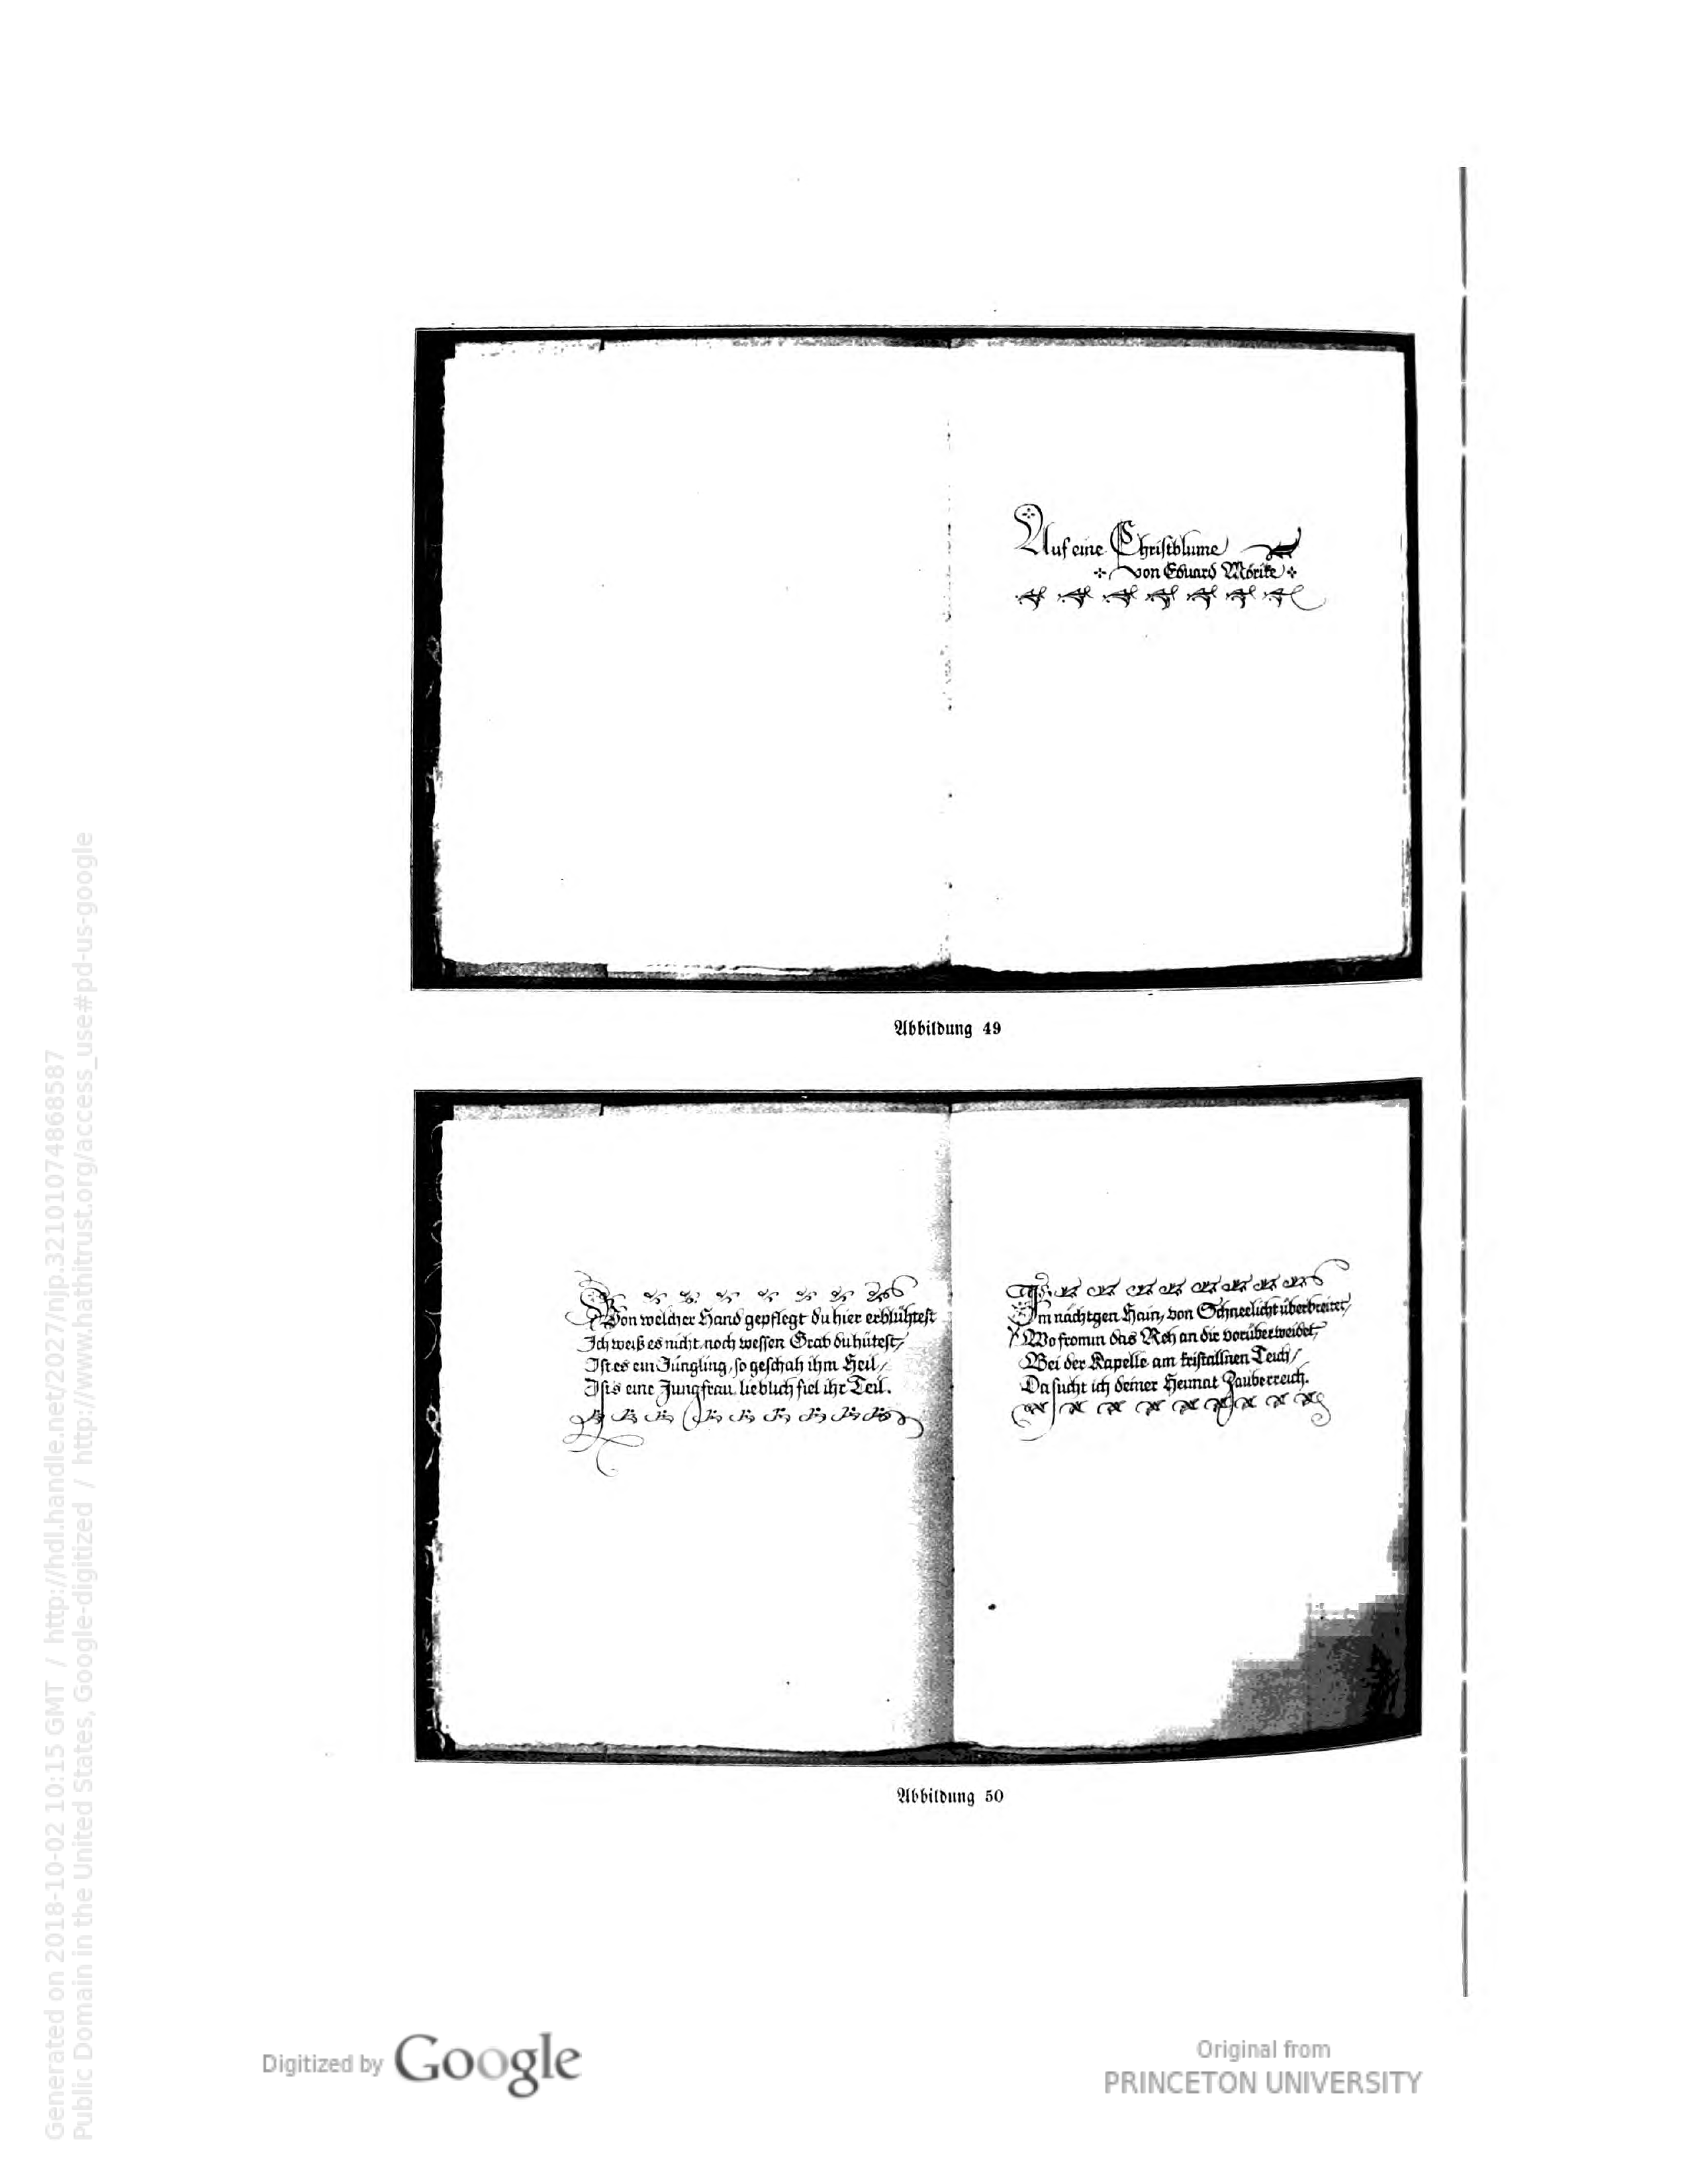 Auf eine Christblume
von Eduard Mörike
Abbildung 49
Von welcher Hand gepflegt du hier erblühtest
Ich weiß es nicht, noch wessen Grab du hütest,
Ist es ein Jüngling, so geschah ihm Heil,
Ist's eine Jungfrau, lieblich fiel ihr Teil.
Im nächtgen Hain, von Schneelicht überbreitet,
Wo fromm das Reh an dir vorüberweidet,
Bei der Kapelle am kristallnen Teich,
Da sucht ich deiner Heimat Zauberreich.
Abbildung 50
Generated on 2018-10-02 10:15 GMT / http://hdl.handle.net/2027/njp.32101074868587
Public Domain in the United States, Google-digitized / http://www.hathitrust.org/access_use#pd-us-google
Digitized by Google
Original from
PRINCETON UNIVERSITY